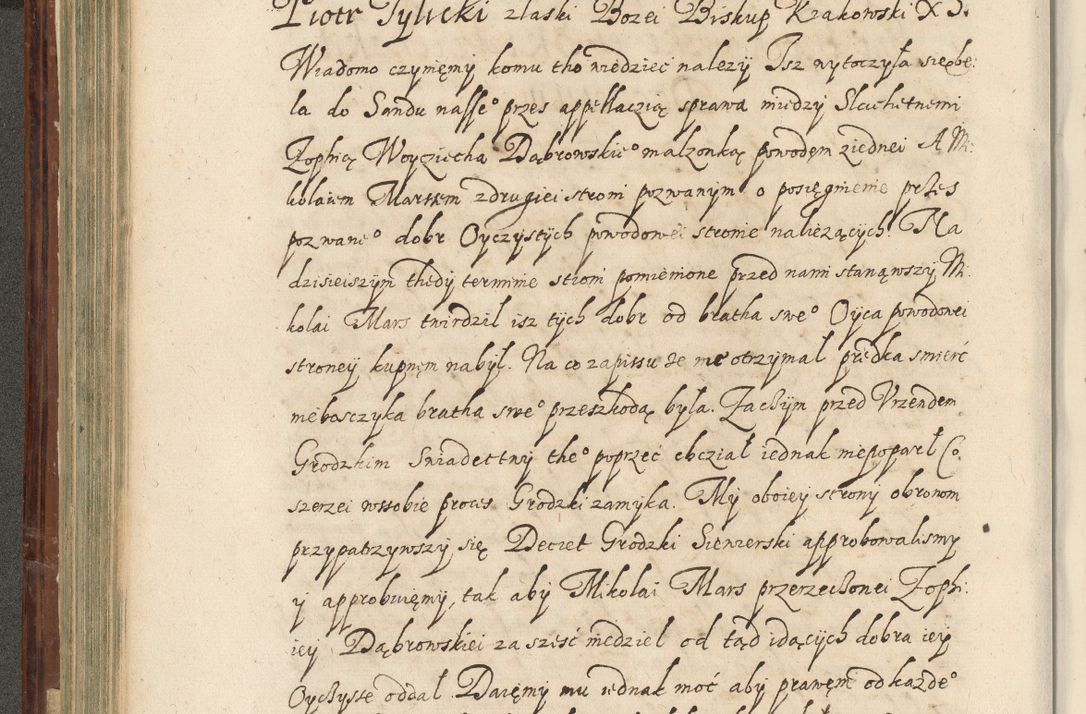 Piotr Tylicki z laski Bozei Biskup Krakowski X S.
Wiadomo czynięmy komu tho wiedziec nalezy Isz wytoczyła się be:
la do Sandu nasse° przes appellaczią sprawa miedzy Slachetnemi
Zophią Woyciecha Dąbrowskie° malzonką powodęm ziednei A Mi:
kolaiem Marssem zdrugiei stroni pozwanym o posięgnienie przes
pozwane° dobr Oyczystych powodowei stronie nalieżących. Na
dzisieiszym thedy terminie stroni pomienione przed nami stanąwszy Mi:
kolai Mars twirdzil isz tych dobr od bratha swe° Oyca powodowei
stroney kupnęm nabył. Na co zapissu że nie otrzymal prędka smierć
niebosczyka bratha swe° przeszkodą była. Zaczym przed Vrzendem
Grodzkim Swiadectwy the° poprzeć chcział iednak niepoparł Co
szerzei wssobie proces Grodzki zamyka. My oboiey strony obronom
przypatrzywszy się Decret Grodzki Siewierski approbowalismy
y approbuięmy, tak aby Mikolai Mars przerzeczonei Zoph:
iey Dąbrowskiei za szesć niedziel od tąd idących dobra iey
Oyczyste oddal Daięmy mu iednak moć aby prawęm od każde°